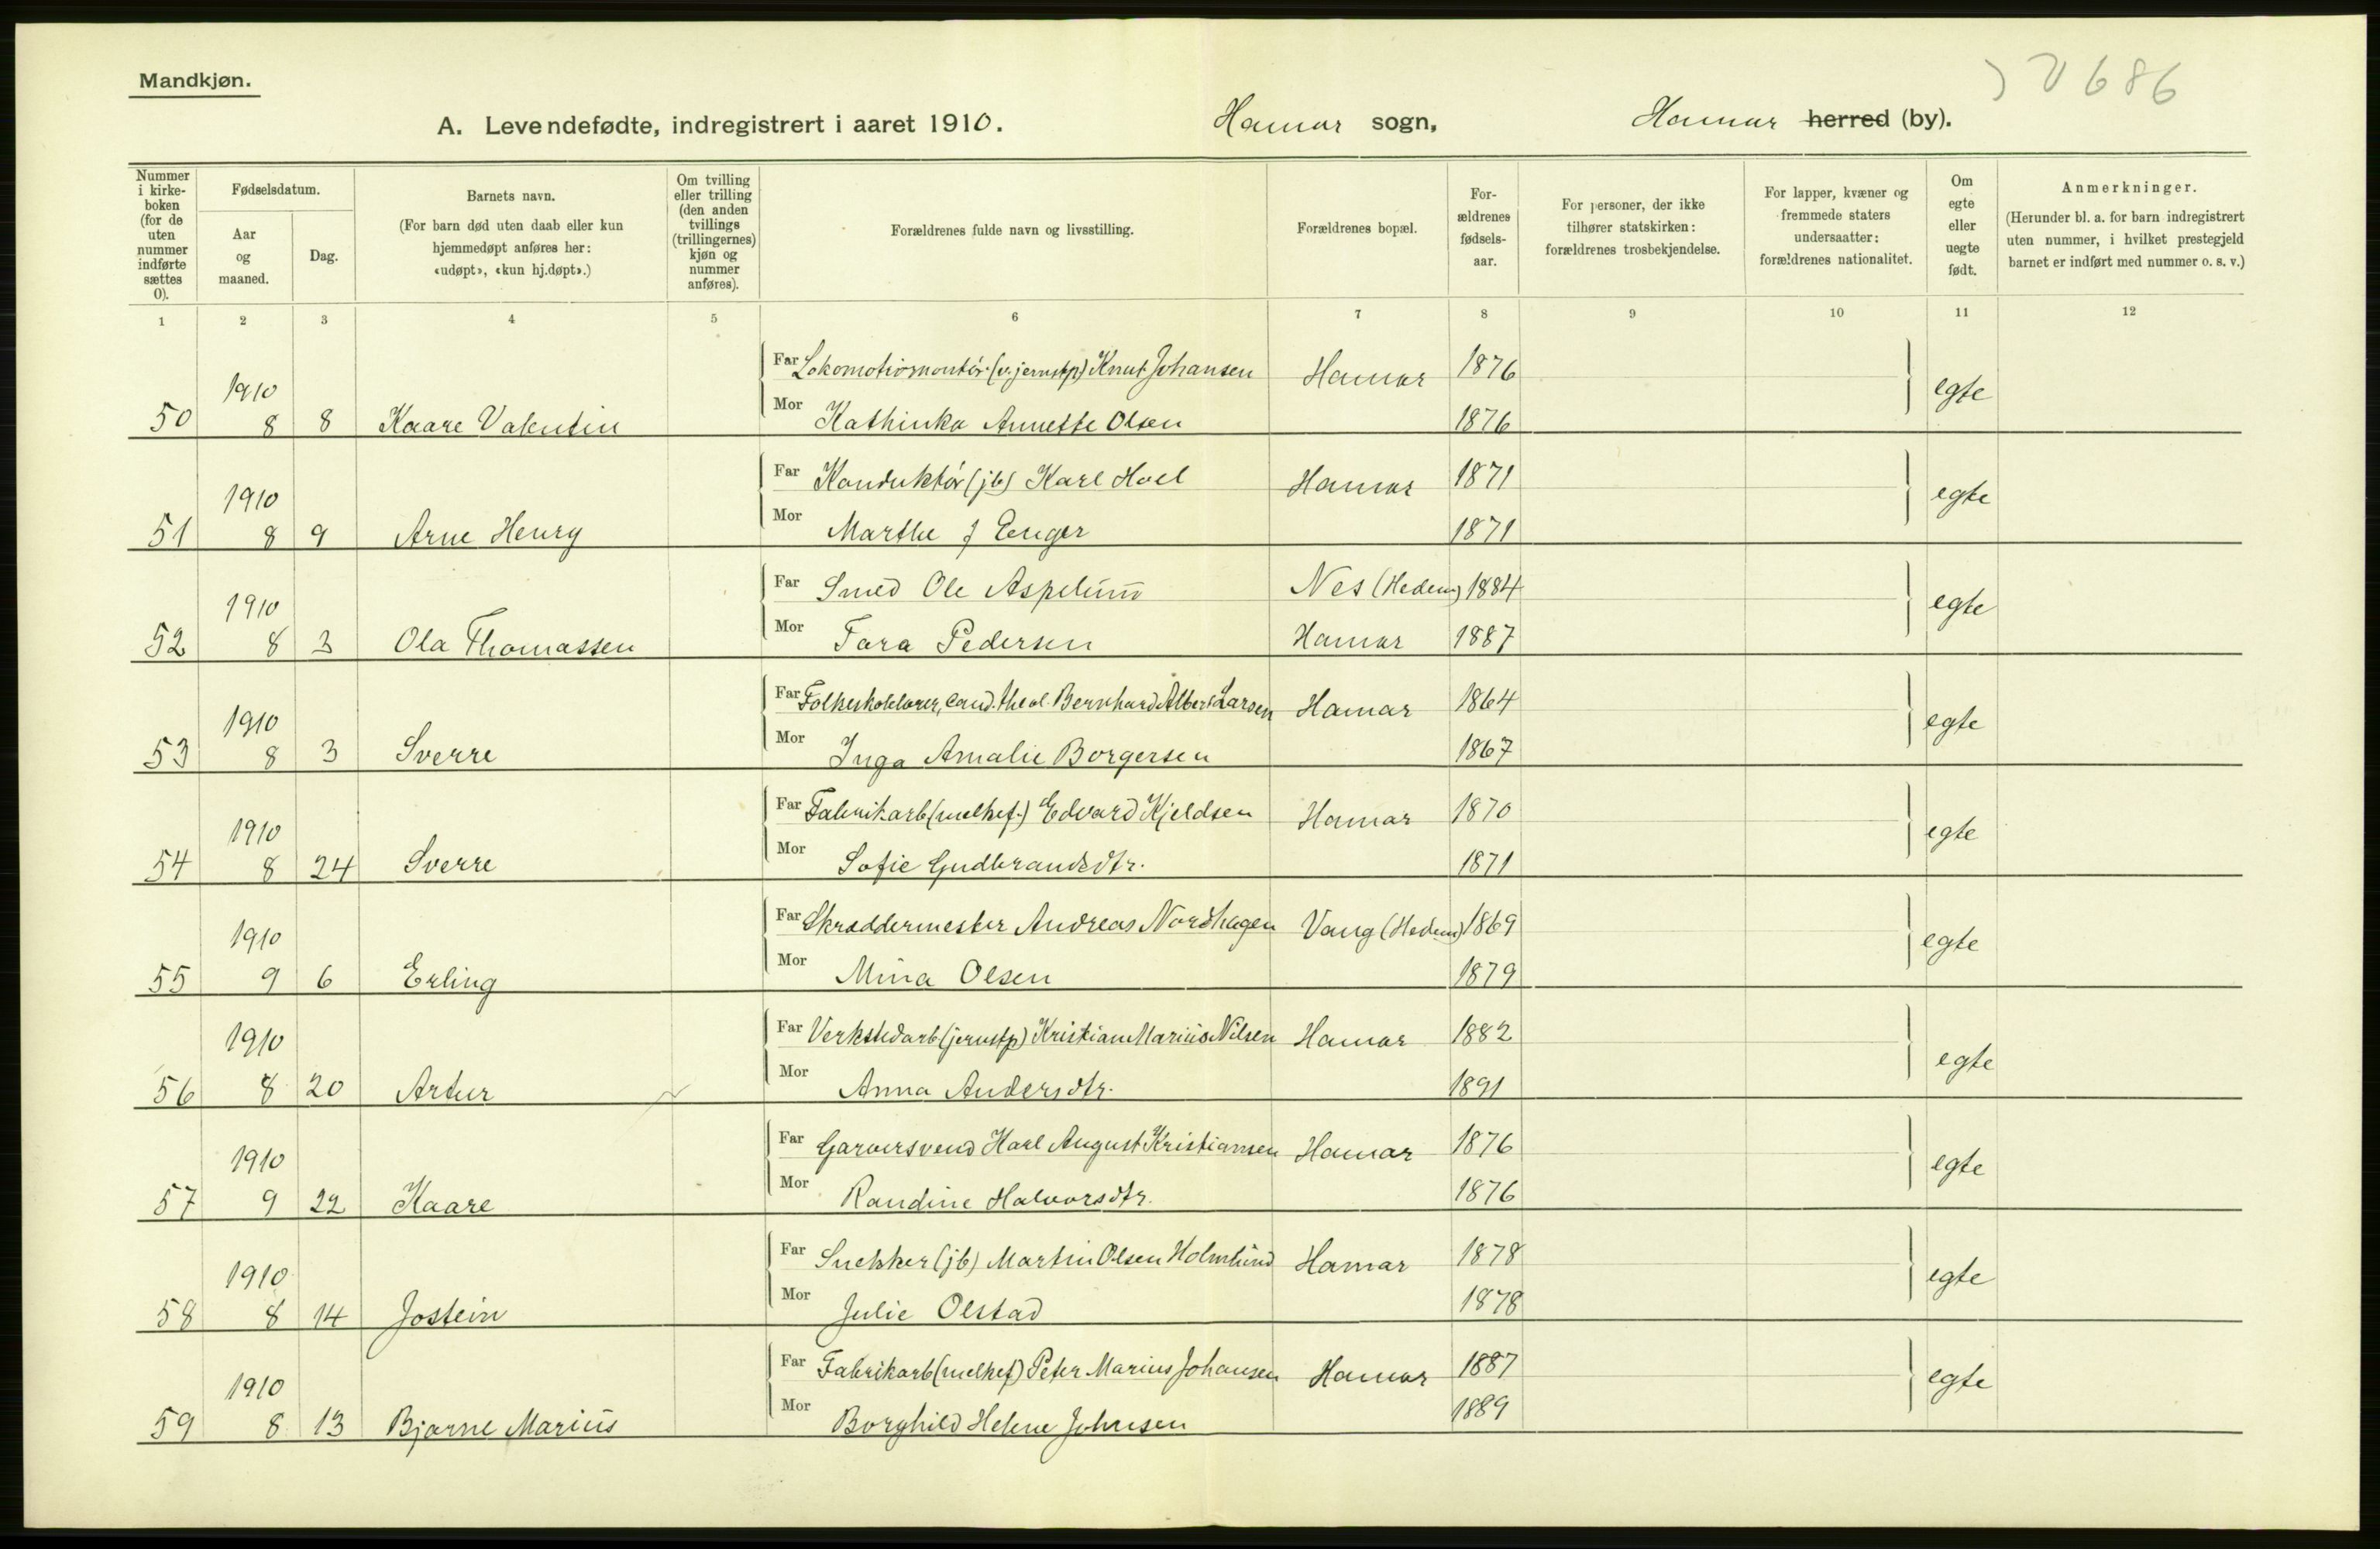 Mandkjøn.
686
A. Levendefødte, indregistrert i aaret 1910. Hamar sogn, Hamar herred (by).
Nummer i kirkeboken (for de uten nummer indførte sættes 0).
Fødselsdatum.
Aar og maaned.
Dag.
Barnets navn.
(For barn død uten daab eller kun hjemmedøpt anføres her: «udøpt», «kun hj.døpt».)
Om tvilling eller trilling (den anden tvillings (trillingernes) kjøn og nummer anføres).
Forældrenes fulde navn og livsstilling.
Forældrenes bopæl.
Forældrenes fødselsaar.
For personer, der ikke tilhører statskirken: forældrenes trosbekjendelse.
For lapper, kvæner og fremmede staters undersaatter: forældrenes nationalitet.
Om egte eller uegte født.
Anmerkninger.
(Herunder bl. a. for barn indregistrert uten nummer, i hvilket prestegjeld barnet er indført med nummer o. s. v.)
1 2 3 4 5 6 7 8 9 10 11 12
Far Lokomotivmontør (v. jernstp) Knut Johansen Hamar 1876
50 1910 8 8 Kaare Valentin egte
Mor Kathinka Annette Olsen 1876
Far Konduktør (jb) Karl Hoel Hamar 1871
51 1910 8 9 Arne Henry egte
Mor Marthe J Enger 1871
Far Smed Ole Aspelund Nes (Hedem) 1884
52 1910 8 3 Ola Thomassen egte
Mor Tora Pedersen Hamar 1887
Far Folkeskolelærer, cand. theol. Bernhard Albert Larsen Hamar 1864
53 1910 8 3 Sverre egte
Mor Inga Amalie Borgersen 1867
Far Fabrikarb (melkef.) Edvard Kjeldsen Hamar 1870
54 1910 8 24 Sverre egte
Mor Sofie Gudbrandsdtr. 1871
Far Skræddermester Andreas Nordhagen Vang (Hedem) 1869
55 1910 9 6 Erling egte
Mor Mina Olsen 1879
Far Verkstedarb (jernstp) Kristian Marius Nilsen Hamar 1882
56 1910 8 20 Artur egte
Mor Anna Andersdtr. 1891
Far Garversvend Karl August Kristiansen Hamar 1876
57 1910 9 22 Kaare egte
Mor Randine Halvorsdtr. 1876
Far Snekker (jb) Martin Olsen Holmlund Hamar 1878
58 1910 8 14 Jostein egte
Mor Julie Olstad 1878
Far Fabrikarb (melkef) Peter Marius Johansen Hamar 1887
59 1910 8 13 Bjarne Marius egte
Mor Borghild Helene Johnsen 1889